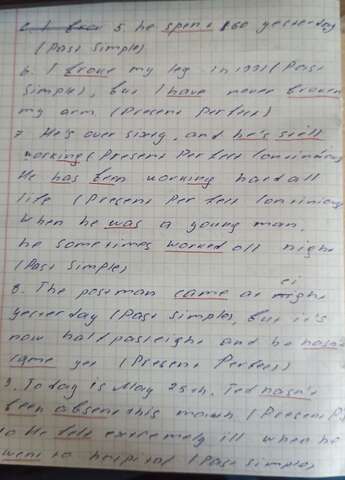 5. he spent £60 yesterday
(Past Simple)
6. I broke my leg in 1991 (Past
Simple), but I have never broken
my arm (Present Perfect)
7. He's over sixty, and he's still
working (Present Perfect Continuous
He has been working hard all
life (Present Perfect Continuous
When he was a young man,
he sometimes worked all night
(Past Simple)
8. The postman came at eight
yesterday (Past Simple, but it's
now half past eight and he hasn't
came yet (Present Perfect)
9. Today is May 25th. Ted hasn't
been absent this month (Present P
10 He felt extremely ill when he
went to hospital (Past simple,